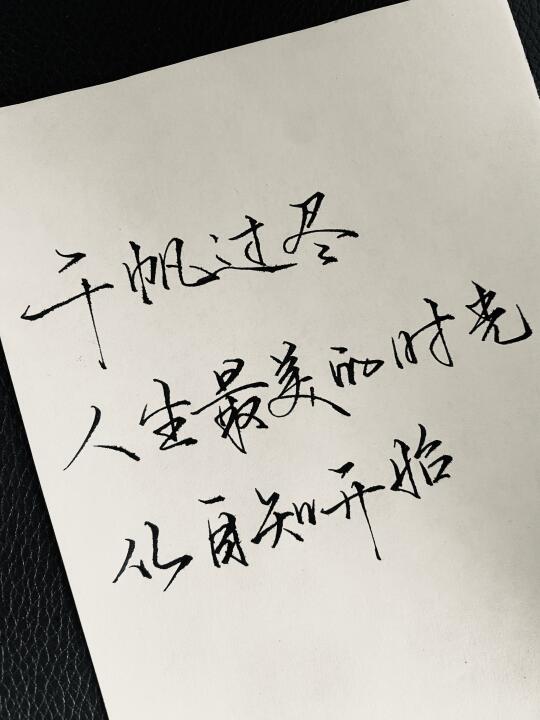 千帆过尽
人生最美的时光
从自知开始